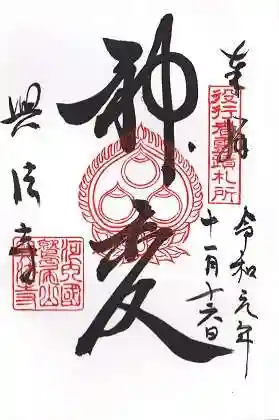 奉拝
役行者霊蹟札所
令和元年
十一月十六日
神変
興法寺
河内國
鷲尾山
興法寺